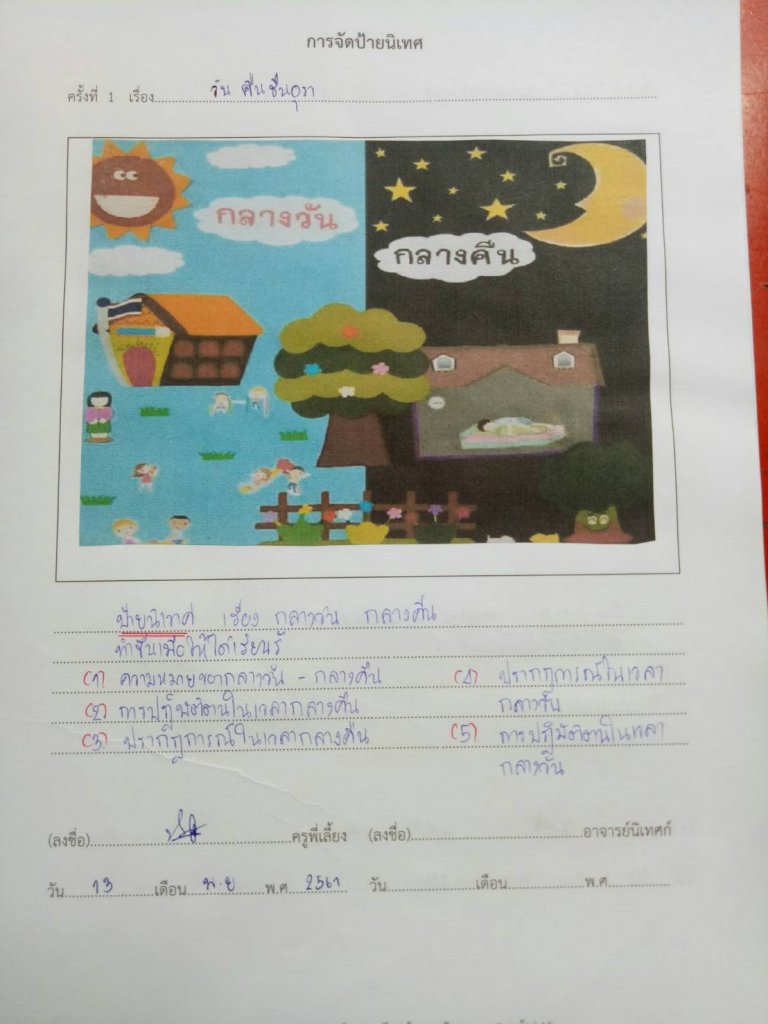 การจัดป้ายนิเทศ
ครั้งที่ 1 เรื่อง วัน คืน ชื่นอุรา
กลางวัน
กลางคืน
ป้ายนิเทศ เรื่อง กลางวัน กลางคืน
ทำขึ้นเพื่อให้ได้เรียนรู้
(1) ความหมายของกลางวัน - กลางคืน
(2) การปฏิบัติตนในเวลากลางคืน
(3) ปรากฏการณ์ในเวลากลางคืน
(4) ปรากฏการณ์ในเวลา
กลางวัน
(5) การปฏิบัติตนในเวลา
กลางวัน
(ลงชื่อ) ครูพี่เลี้ยง (ลงชื่อ) อาจารย์นิเทศก์
วัน 13 เดือน พ.ย พ.ศ. 2561 วัน เดือน พ.ศ.